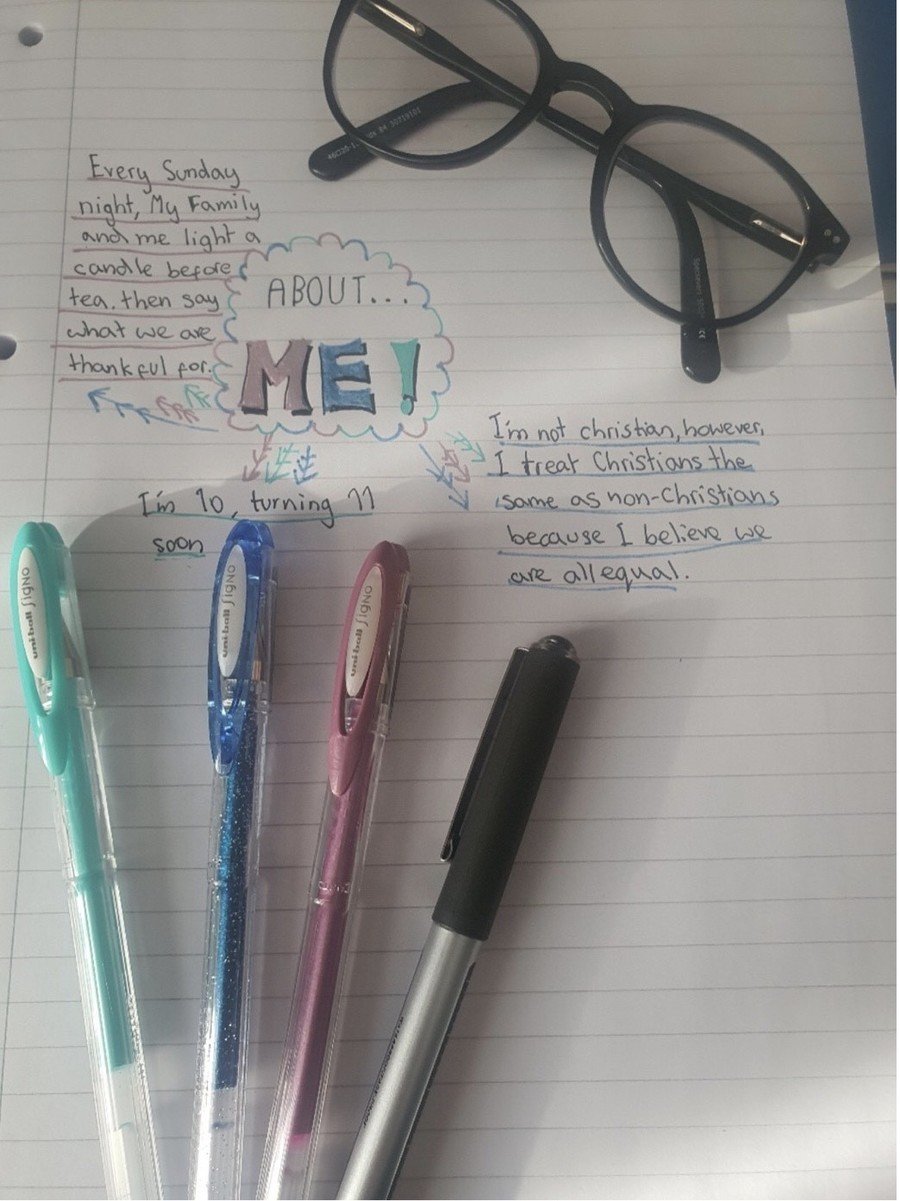 Every Sunday
night, My Family
and me light a
candle before
tea. then say
what we are
thankful for.
ABOUT...
ME!
I'm not christian, however,
I treat Christians the
same as non-Christians
because I believe we
are all equal.
I'm 10, turning 11
soon
uni-ball SigNo
uni-ball SigNo
uni-ball SigNo